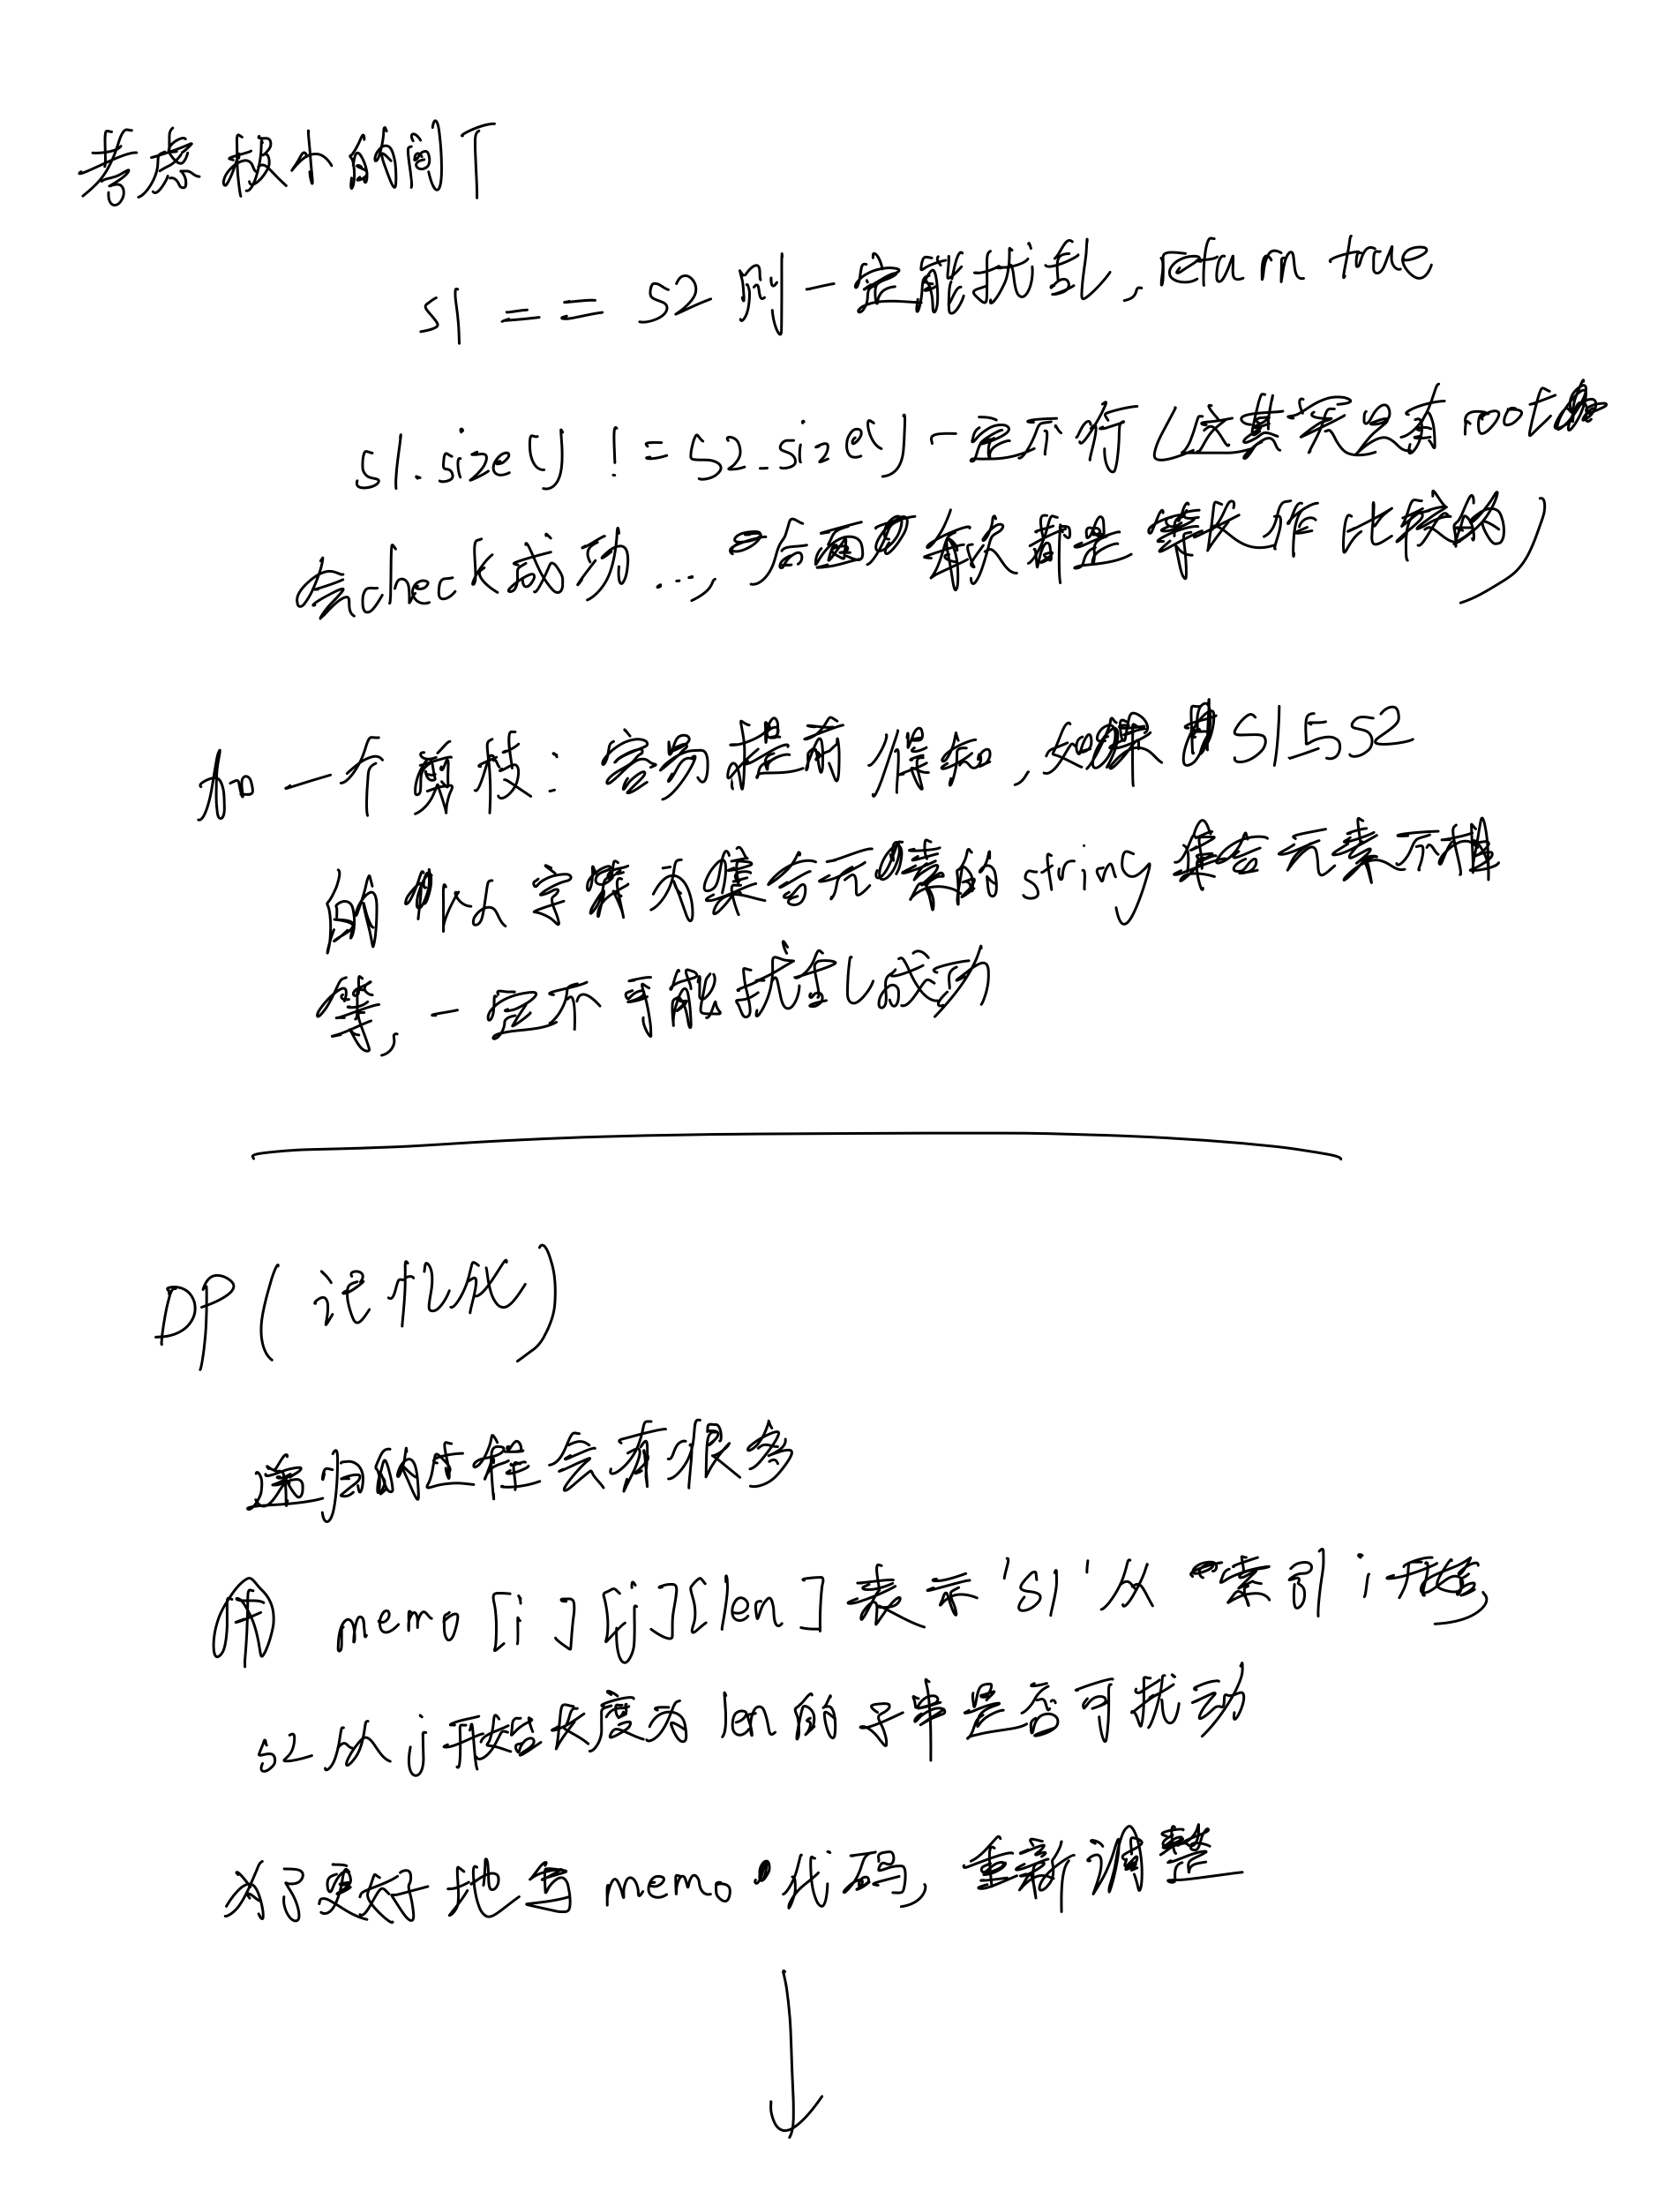 考虑极小的问丁
s1 == s2 则一定能扰乱,return true
s1.size() != s2.size() 一定不行(这其实只有root
会check成功...,后面每次都是等长作比较的)
加一个剪枝:容易提前得知,如果 s1与s2
的以字符为集合元素的string集合元素不相
等,一定不可能扰乱成功
DP(记忆化)
递归的过程会有很多
用 memo[i][j][len]表示's1'从索引i开始
s2从j开始长度为len的子串是否可扰动
为了更好地写memo代码,重新调整